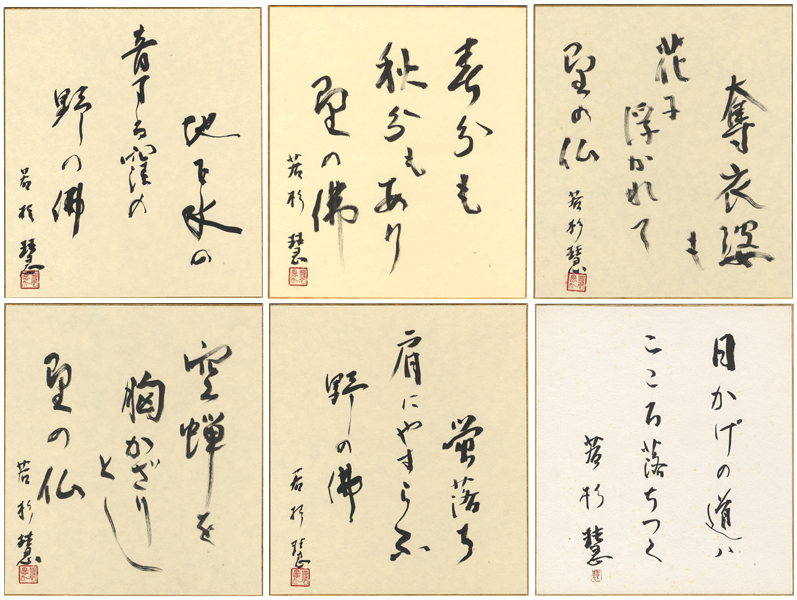 地下水の
音する窪の
野の佛
若杉 慧
春分も
秋分もあり
野の佛
若杉 慧
奪衣婆も
花に
浮かれて
野の仏
若杉 慧
空蝉を
胸かざり
とし
野の仏
若杉 慧
螢落ち
肩にやすらふ
野の佛
若杉 慧
日かげの道は
こころ落ちつく
若杉 慧